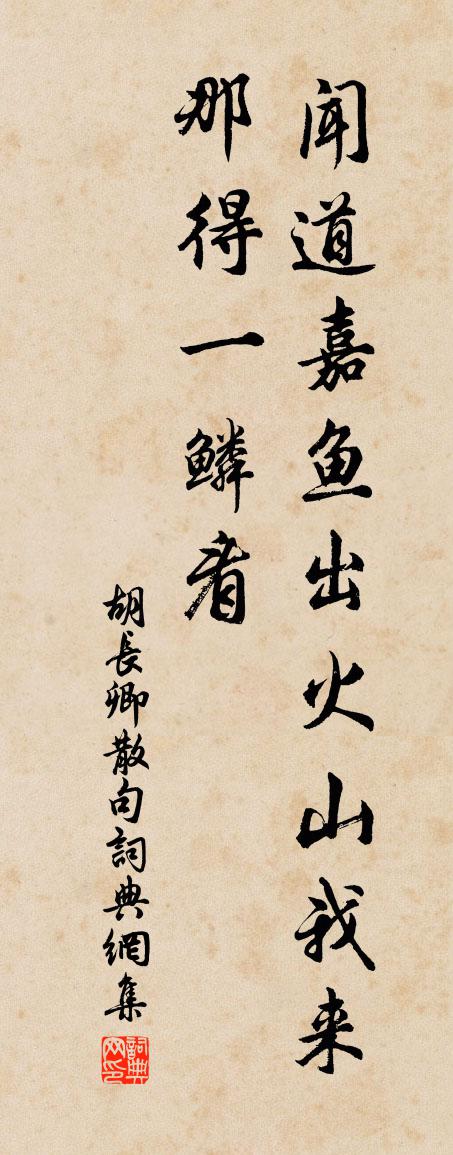 闻道嘉鱼出火山我来
那得一鳞看
胡長卿散句詞典網集
詞典网印